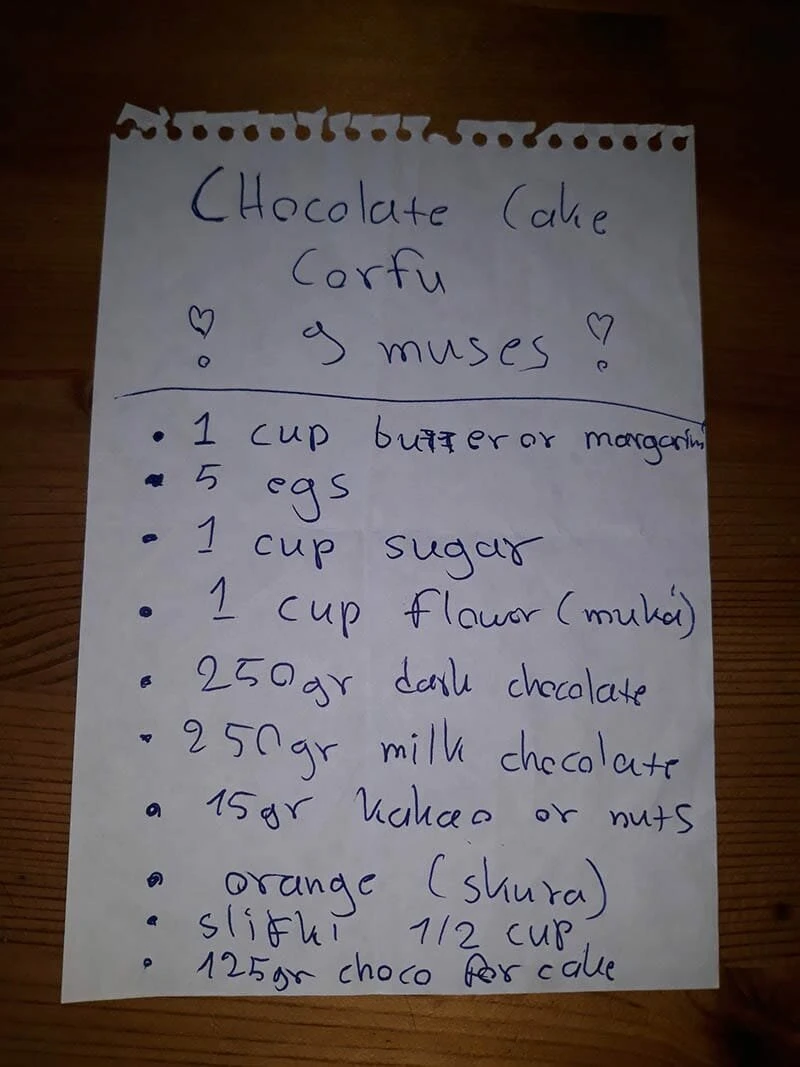 CHocolate Cake
Corfu
9 muses
• 1 cup butter or margarin
• 5 egs
• 1 cup sugar
• 1 cup flowor (muká)
• 250gr dark chocolate
• 250gr milk chocolate
• 15gr kakao or nuts
• orange (skura)
• slifki 1/2 cup
• 125gr choco for cake